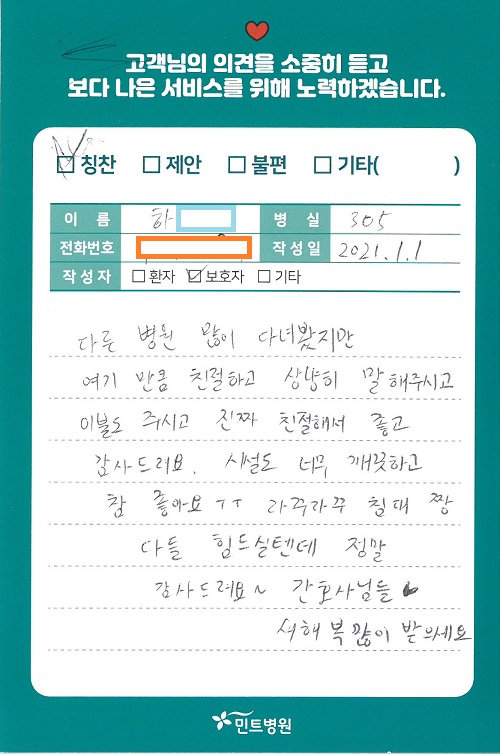 고객님의 의견을 소중히 듣고
보다 나은 서비스를 위해 노력하겠습니다.
칭찬 제안 불편 기타( )
이 름 하 병 실 305
전화번호 작 성 일 2021.1.1
작 성 자 환자 보호자 기타
다른 병원 많이 다녀봤지만
여기 만큼 친절하고 상냥히 말해주시고
이불도 주시고 진짜 친절해서 좋고
감사드려요. 시설도 너무 깨끗하고
참 좋아요 ㅜㅜ 라꾸라꾸 침대 짱
다들 힘드실텐데 정말
감사드려요~ 간호사님들
새해 복 많이 받으세요
민트병원